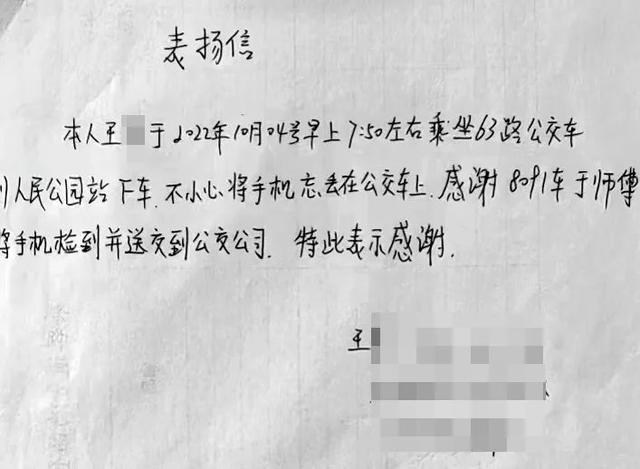 表扬信
本人王 于2022年10月04号早上7:50左右乘坐63路公交车
到人民公园站下车.不小心将手机忘丢在公交车上.感谢8091车于师傅
将手机捡到并送交到公交公司.特此表示感谢.
王